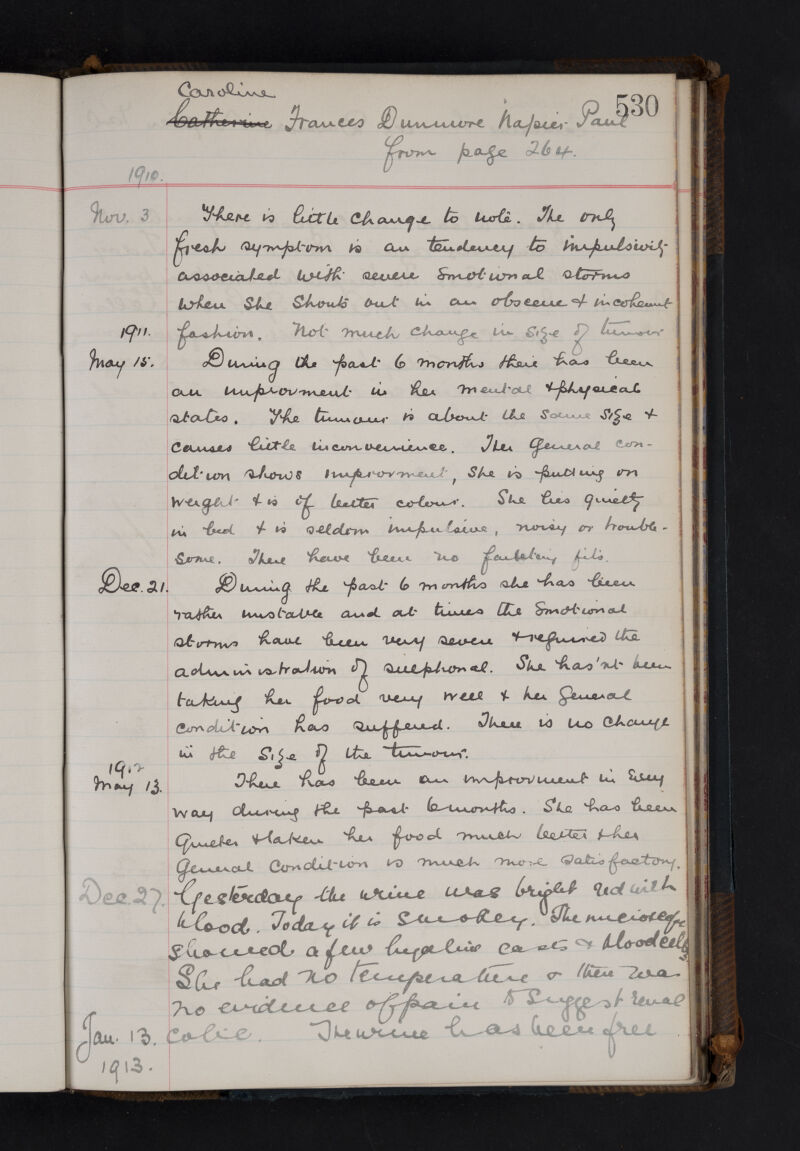 530
Caroline
Catherine Frances Dunmore Napier Paul
from page 264.
1910.
Nov. 3 There is little change to note. The only
fresh symptom is an tendency to impulsivity
associated with severe emotional storms
when she shouts out in an obscene & incoherent
1911. fashion. Not much change in size of tumour
May 15. During the past 6 months there has been
an improvment in her mental & physical
states. The tumour is about the same size &
causes little inconvenience. Her general con-
dition shows improvment, she is putting on
weight & is of better colour. She lies quietly
in bed & is seldom impulsive, noisy or trouble-
some. There have been no fainting fits.
Dec. 21. During the past 6 months she has been
rather unstable and at times the emotional
storms have been very severe & required the
administration of sulphonal. She has'nt been
taking her food very well & her general
condition has suffered. There is no change
in the size of the tumour.
1912
May 13. There has been an improvment in every
way during the past 6 months. She has been
quieter & taken her food much better & her
general condition is much more satisfactory.
Dec. 27. Yesterday the urine was bright red with
blood. Today it is smokey. The microscope
showed a few hyaline casts & blood cells
She had no temperature & there was
no evidence of pain to suggest renal
Jan. 13. colic. The urine has been free
1913.